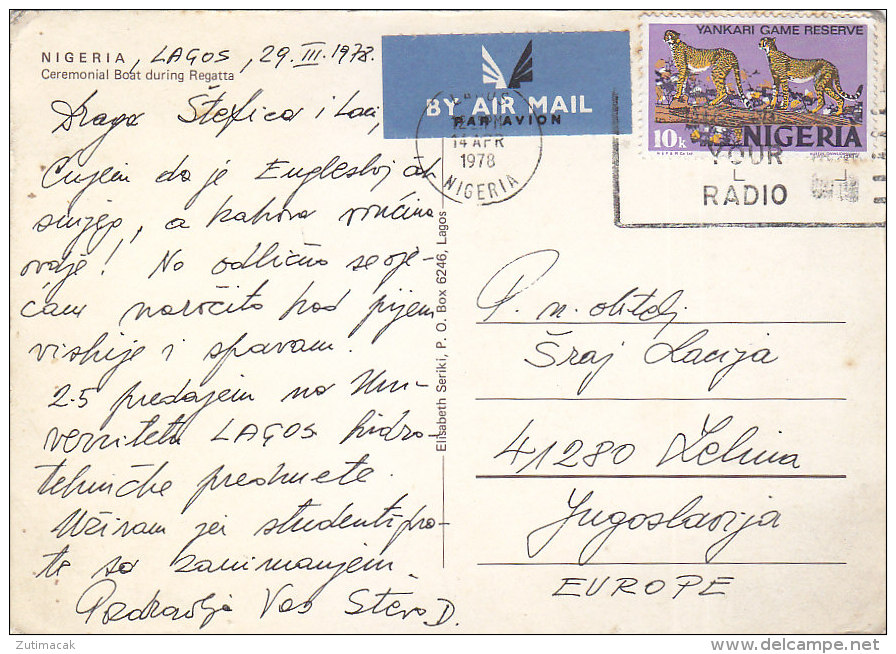 NIGERIA, LAGOS, 29. III. 1978.
Ceremonial Boat during Regatta
Draga Štefica i Laci,
Čujem da je Engleskoj
snijeg, a kakova vrućina
ovdje! No odlično se osje-
ćam naročito kad pijem
viskije i spavam.
2.5 predajem na Uni-
verzitetu LAGOS hidro-
tehničke predmete.
Uživam jer studenti pra-
te sa zanimanjem.
Pozdravlja Vas Stevo D.
Elisabeth Seriki, P. O. Box 6246, Lagos
BY AIR MAIL
PAR AVION
14 APR
1978
NIGERIA
YANKARI GAME RESERVE
10k NIGERIA
YOUR
RADIO
P. n. obitelj
Šraj Lacija
41280 Zelina
Jugoslavija
EUROPE
Zutimacak
delcampe.net